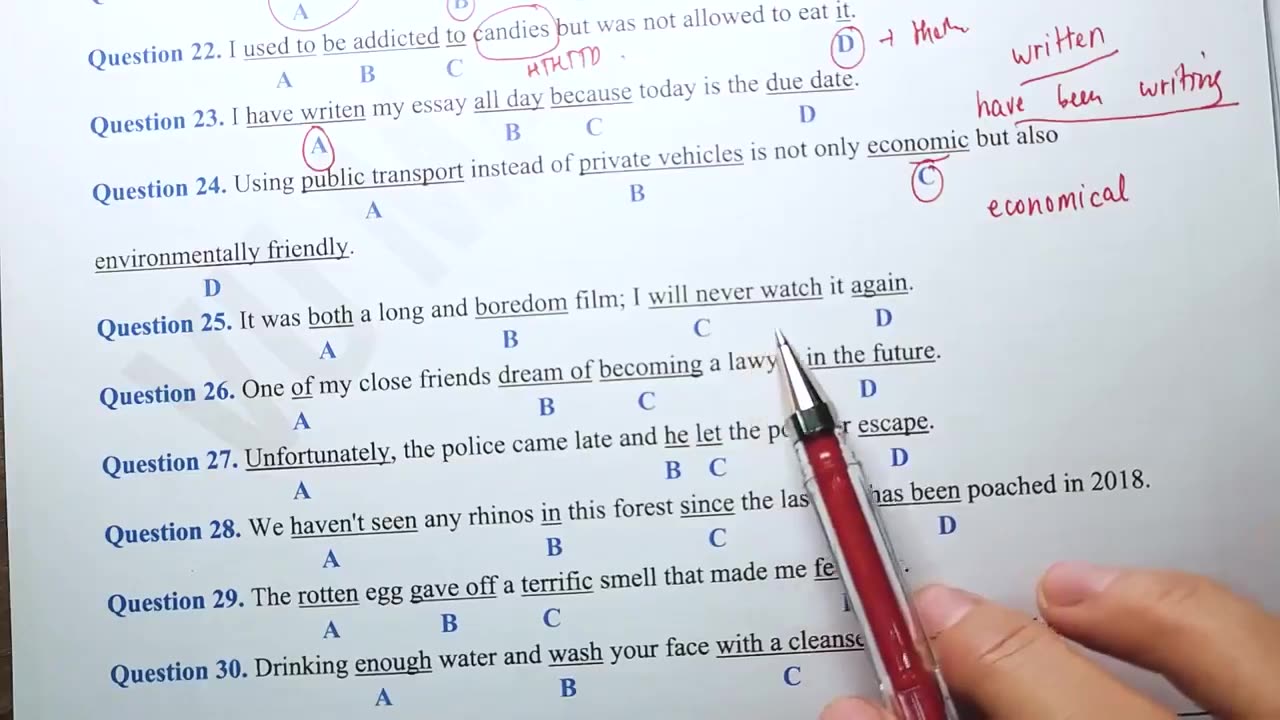 A B
Question 22. I used to be addicted to candies but was not allowed to eat it.
A B C D → them
HTHTTD
written
Question 23. I have writen my essay all day because today is the due date.
A B C D
have been writing
Question 24. Using public transport instead of private vehicles is not only economic but also
A B C
economical
environmentally friendly.
D
Question 25. It was both a long and boredom film; I will never watch it again.
A B C D
Question 26. One of my close friends dream of becoming a lawy in the future.
A B C D
Question 27. Unfortunately, the police came late and he let the po r escape.
A B C D
Question 28. We haven't seen any rhinos in this forest since the las has been poached in 2018.
A B C D
Question 29. The rotten egg gave off a terrific smell that made me fe
A B C
Question 30. Drinking enough water and wash your face with a cleanse
A B C